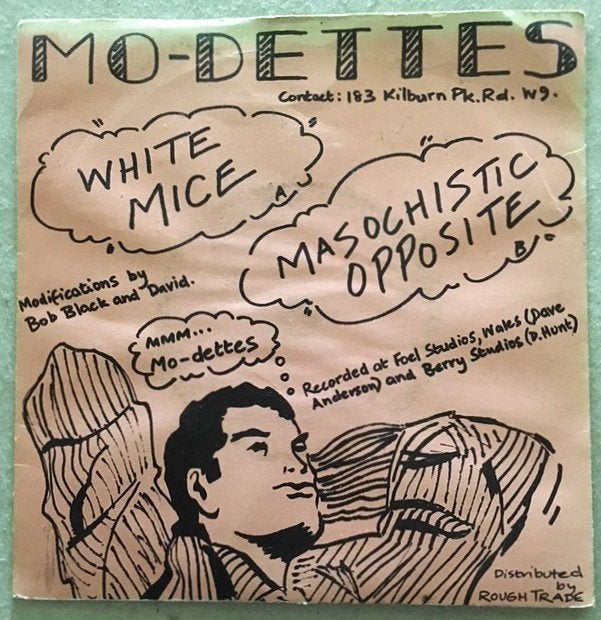 MO-DETTES
Contact: 183 Kilburn Pk. Rd. W9.
WHITE
MICE
A
MASOCHISTIC
OPPOSITE
B
Modifications by
Bob Black and David.
MMM...
Mo-dettes
Recorded at Foel Studios, Wales (Dave
Anderson) and Berry Studios (D. Hunt)
Distributed
by
ROUGH TRADE